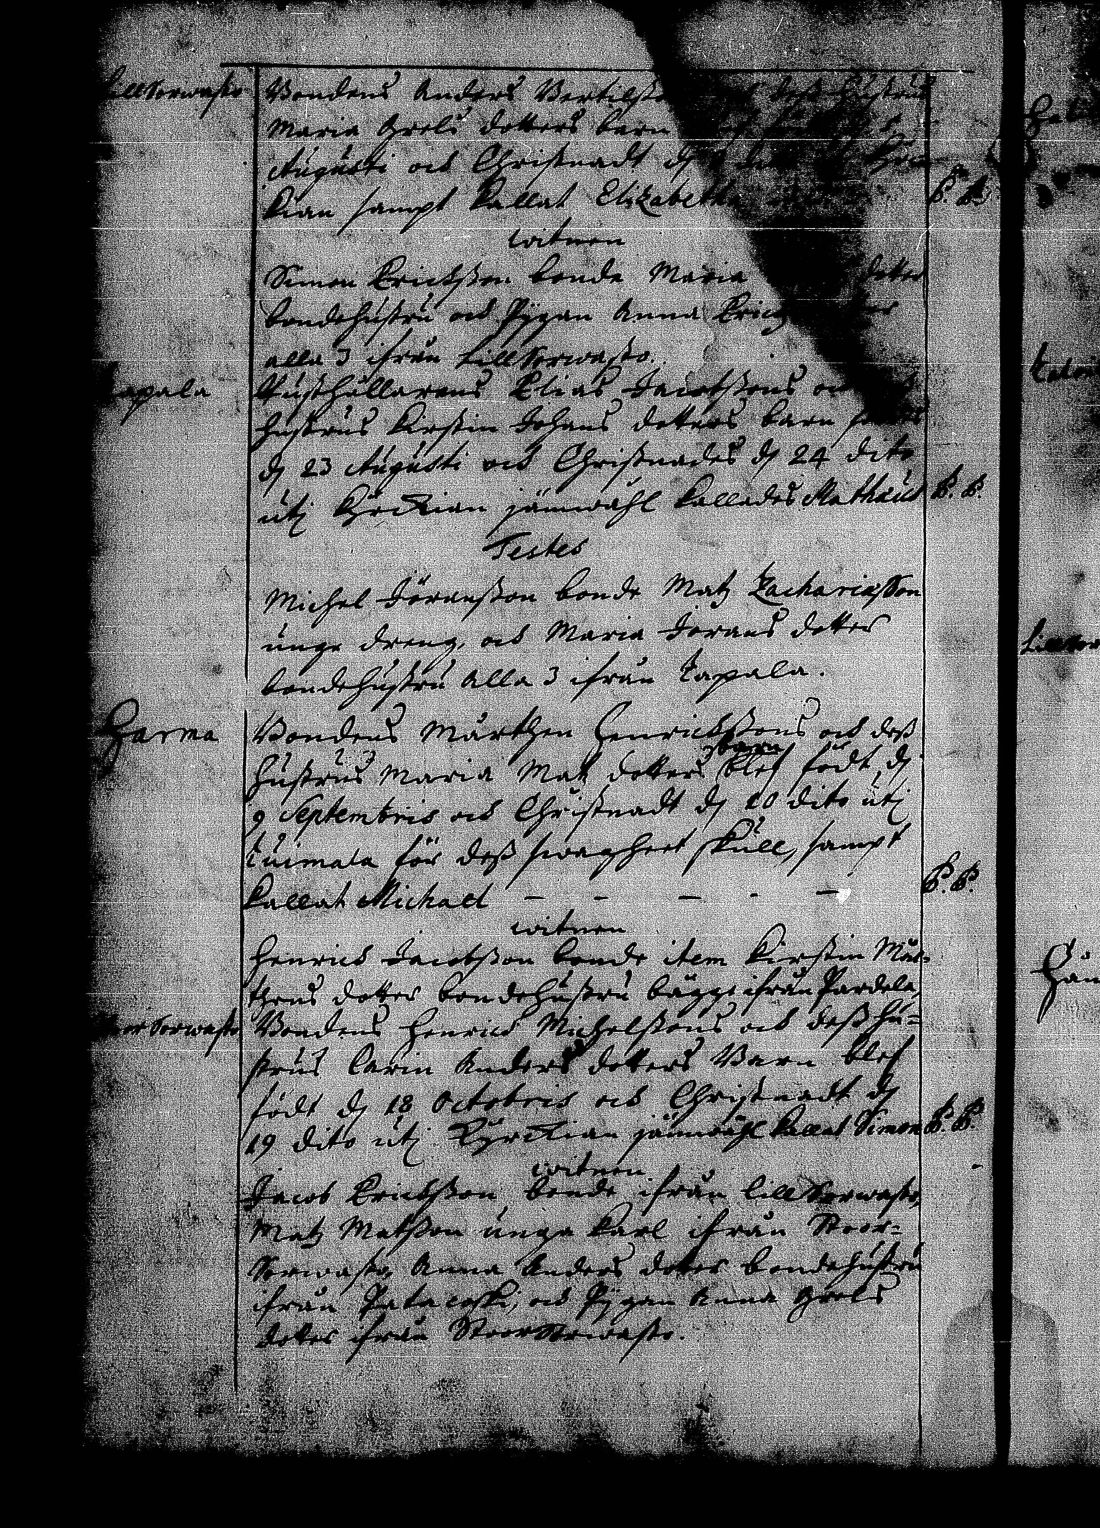 Lill Sorwasto
Bondens Anders Bertilsso deß hustrus
Maria Grels dotters barn
Augusti och Christnadt d
kian sampt kallat Elizabetha
B. B.
witnen
Simon Erichsson bonde Maria dotter
bondehustru och Pygan Anna Erich
alla 3 ifrån Lill Sorwasto.
apala
Rusthållarens Elias Jacobssons och
hustrus Kirstin Johans dotters barn
d 23 Augusti och Christnades d 24 dito
utj Kyrckian jämwähl kallades Mathæus
B. B.
Testes
Michel Jöransson bonde Matz Zachariæsson
unge dreng, och Maria Jorans dotter
bondehustru alla 3 ifrån Tapala.
Harma
Bondens Mårthen Henrichssons och deß
hustrus Maria Matz dotters barn blef födt d
9 Septembris och Christnadt d 10 dito utj
Tuimala för deß swagheet skull, sampt
kallat Michael - - - - -
B. B.
witnen
Henrich Jacobsson bonde item Kirstin Mår-
thens dotter bondehustru bägge ifrån Pardela,
oor Sorwasto
Bondens Henrich Michelssons och deß hu-
strus Carin Anders dotters Barn blef
födt d 18 Octobris och Christnadt d
19 dito utj Kyrckian jämwähl kallat Simon
B. B.
witnen
Jacob Erichsson bonde ifrån Lill Sorwasto,
Matz Matsson unge karl ifrån Stoor-
Sorwasto, Anna Anders dotter bondehustru
ifrån Patacoski, och Pygan Anna Grels
dotter ifrån Stoor Sorwasto.